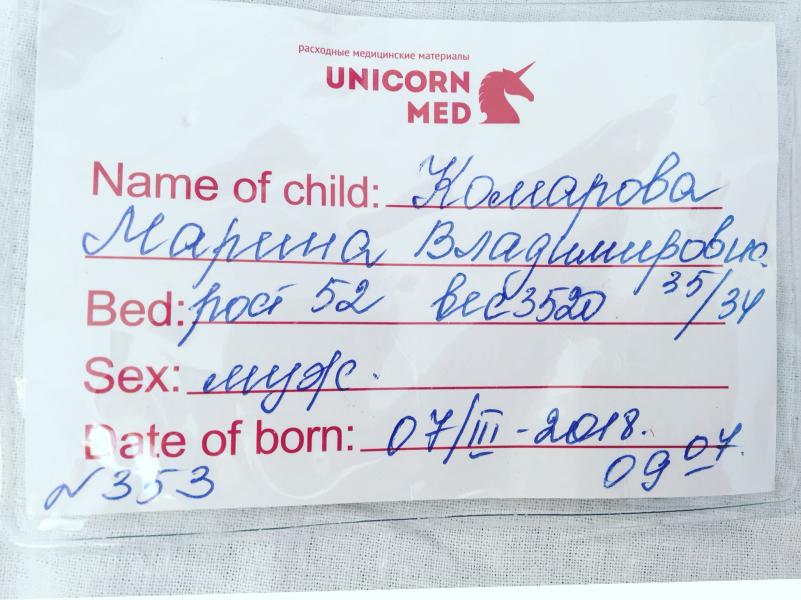 расходные медицинские материалы
UNICORN
MED
Name of child: Комарова
Марина Владимировис
Bed: рост 52 вес 3520 35/34
Sex: муж.
Date of born: 07/III-2018.
N353 09 07.